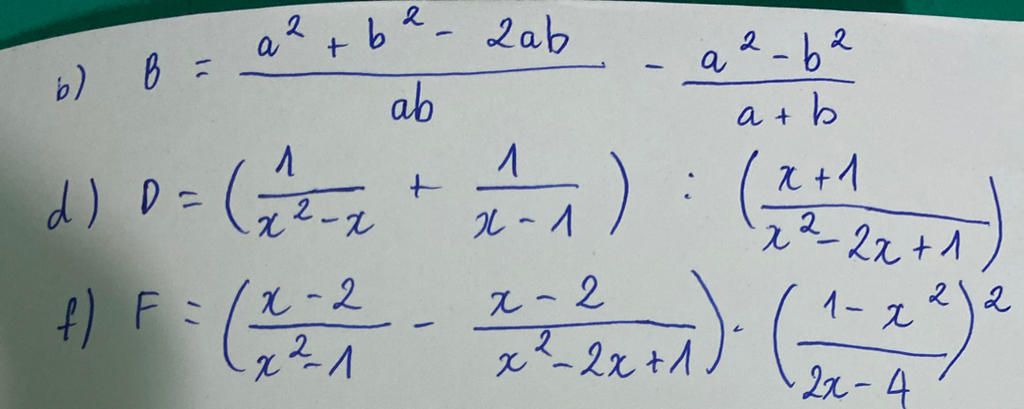 b) B = \frac{a^2 + b^2 - 2ab}{ab} - \frac{a^2 - b^2}{a + b}
d) D = \left(\frac{1}{x^2 - x} + \frac{1}{x - 1}\right) : \left(\frac{x + 1}{x^2 - 2x + 1}\right)
f) F = \left(\frac{x - 2}{x^2 - 1} - \frac{x - 2}{x^2 - 2x + 1}\right) \cdot \left(\frac{1 - x^2}{2x - 4}\right)^2